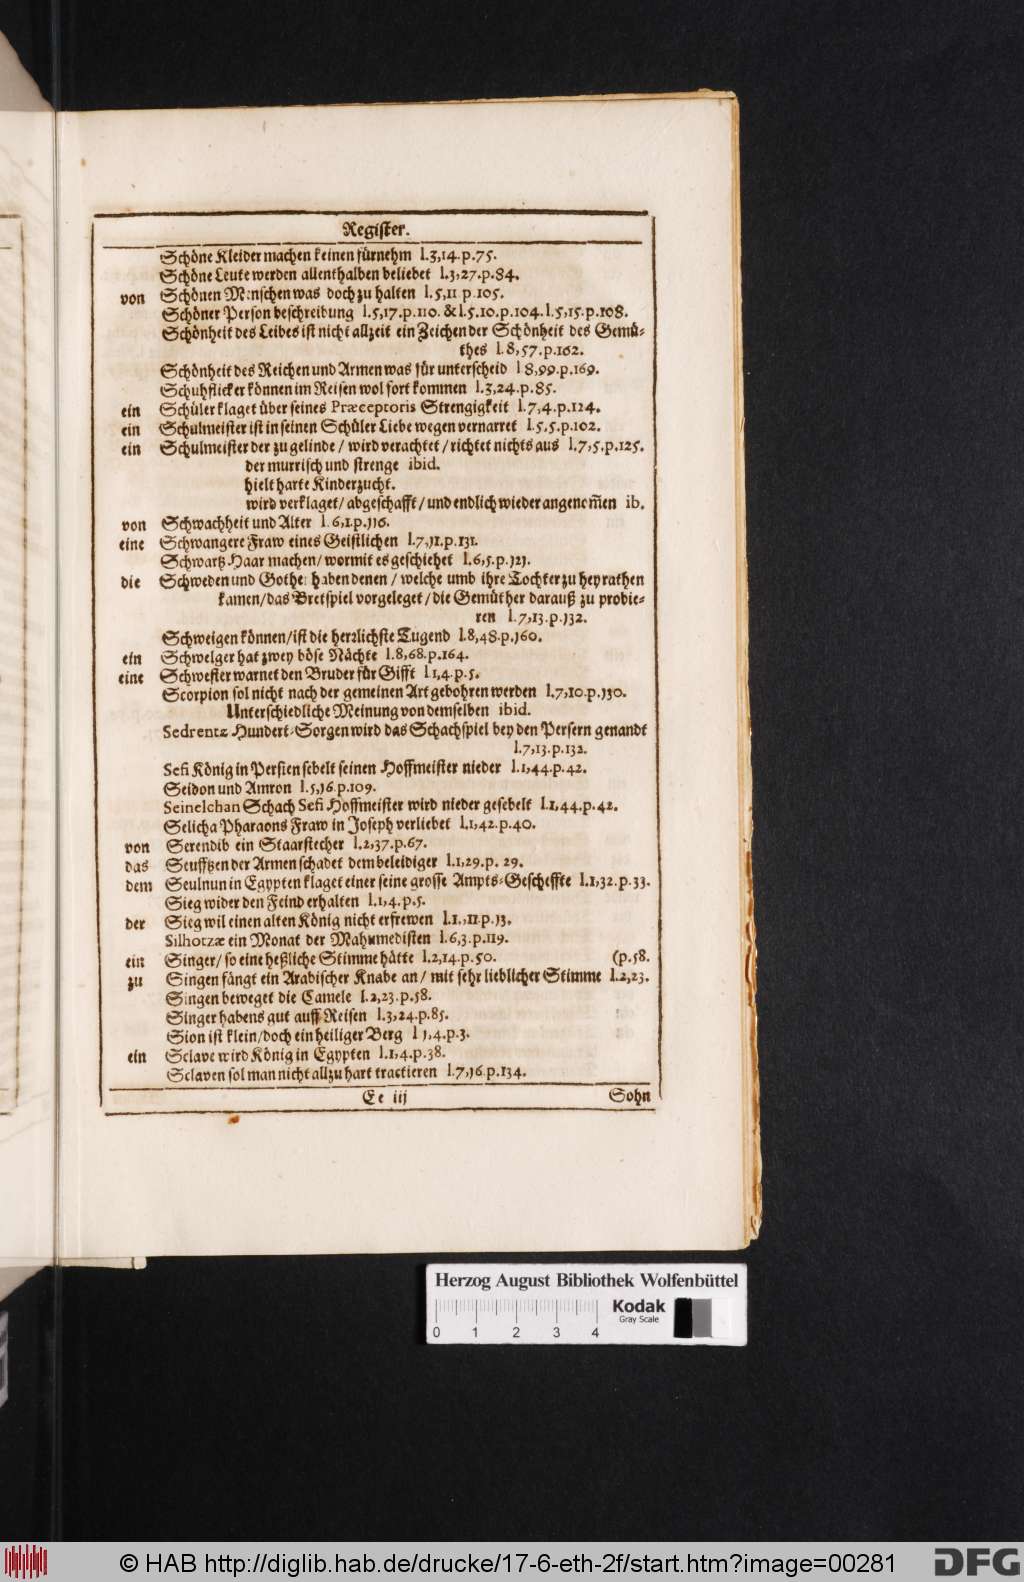 Register.
Schöne Kleider machen keinen fürnehm l.3,14.p.75.
Schöne Leute werden allenthalben beliebet l.3,27.p.84.
von Schönen Menschen was doch zu halten l.5,11.p.105.
Schöner Person beschreibung l.5,17.p.110. & l.5.10.p.104.l.5,15.p.108.
Schönheit des Leibes ist nicht allzeit ein Zeichen der Schönheit des Gemü-
thes l.8,57.p.162.
Schönheit des Reichen und Armen was für unterscheid l 8,99.p.169.
Schuhflicker können im Reisen wol fort kommen l.3,24.p.85.
ein Schüler klaget über seines Præceptoris Strengigkeit l.7,4.p.124.
ein Schulmeister ist in seinen Schüler Liebe wegen vernarret l.5,5.p.102.
ein Schulmeister der zu gelinde / wird verachtet / richtet nichts aus l.7,5.p.125.
der murrisch und strenge ibid.
hielt harte Kinderzucht.
wird verklaget / abgeschafft / und endlich wieder angenom̃en ib.
von Schwachheit und Alter l.6,1.p.116.
eine Schwangere Fraw eines Geistlichen l.7,11.p.131.
Schwartz Haar machen / wormit es geschiehet l.6,5.p.121.
die Schweden und Gothen haben denen / welche umb ihre Tochter zu heyrathen
kamen / das Bretspiel vorgeleget / die Gemüther darauß zu probie-
ren l.7,13.p.132.
Schweigen können / ist die herrlichste Tugend l.8,48.p.160.
ein Schwelger hat zwey böse Nächte l.8,68.p.164.
eine Schwester warnet den Bruder für Gifft l 1,4.p.5.
Scorpion sol nicht nach der gemeinen Art gebohren werden l.7,10.p.130.
Unterschiedliche Meinung von demselben ibid.
Sedrentz Hundert-Sorgen wird das Schachspiel bey den Persern genandt
l.7,13.p.132.
Sefi König in Persien sebelt seinen Hoffmeister nieder l.1,44.p.42.
Seidon und Amron l.5,16.p.109.
Seinelchan Schach Sefi Hoffmeister wird nieder gesebelt l.1,44.p.42.
Selicha Pharaons Fraw in Joseph verliebet l.1,42.p.40.
von Serendib ein Staarstecher l.2,37.p.67.
das Seufftzen der Armen schadet dem beleidiger l.1,29.p. 29.
dem Seulnun in Egypten klaget einer seine grosse Ampts-Gescheffte l.1,32.p.33.
Sieg wider den Feind erhalten l.1,4.p.5.
der Sieg wil einen alten König nicht erfrewen l.1.,11.p.13.
Silhotzæ ein Monat der Mahumedisten l.6,3.p.119.
ein Singer / so eine heßliche Stimme hätte l.2,14.p.50. (p.58.
zu Singen fängt ein Arabischer Knabe an / mit sehr lieblicher Stimme l.2,23.
Singen beweget die Camele l.2,23.p.58.
Singer habens gut auff Reisen l.3,24.p.85.
Sion ist klein / doch ein heiliger Berg l 1,4.p.3.
ein Sclave wird König in Egypten l.1,4.p.38.
Sclaven sol man nicht allzu hart tractieren l.7,16.p.134.
Ee iij Sohn
Herzog August Bibliothek Wolfenbüttel
Kodak
Gray Scale
0 1 2 3 4
© HAB http://diglib.hab.de/drucke/17-6-eth-2f/start.htm?image=00281
DFG